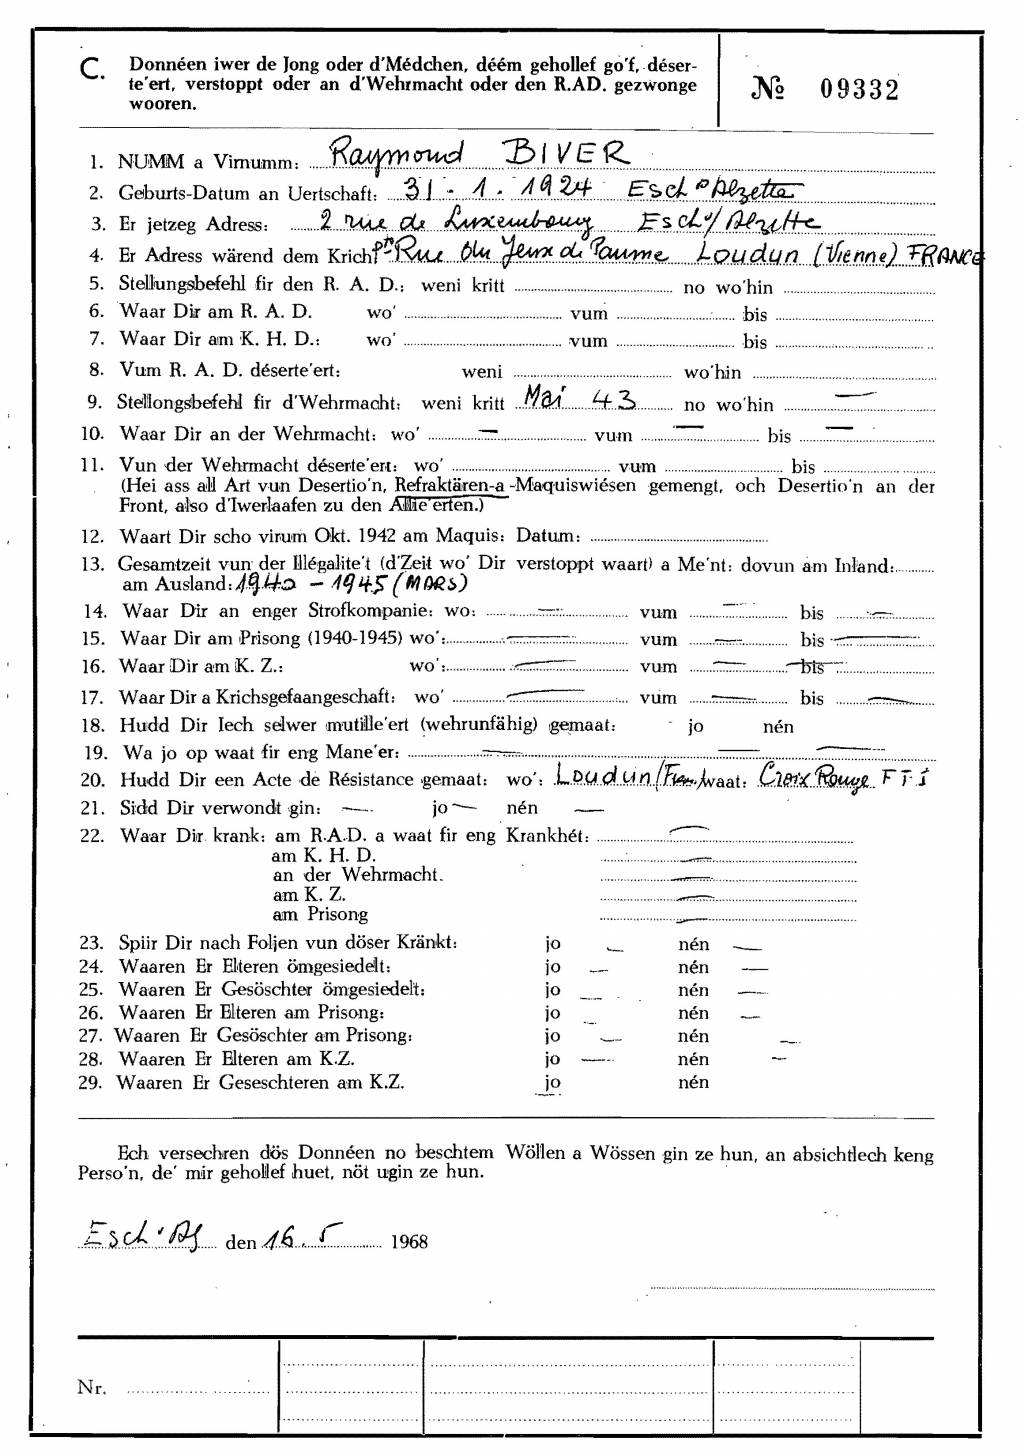 C. Donnéen iwer de Jong oder d'Médchen, déém gehollef go'f, déser-
te'ert, verstoppt oder an d'Wehrmacht oder den R.AD. gezwonge
wooren.
№ 09332
1. NUMM a Virnumm: Raymond BIVER
2. Geburts-Datum an Uertschaft: 31 - 1. 1924 Esch s/Alzette
3. Er jetzeg Adress: 2 rue de Luxembourg Esch s/ Alzette
4. Er Adress wärend dem Krich: pte Rue du Jeux de Paume Loudun (Vienne) FRANCE
5. Stellungsbefehl fir den R. A. D.: weni kritt no wo'hin
6. Waar Dir am R. A. D. wo' vum bis
7. Waar Dir am K. H. D.: wo' vum bis
8. Vum R. A. D. déserte'ert: weni wo'hin
9. Stellongsbefehl fir d'Wehrmacht: weni kritt Mai 43 no wo'hin —
10. Waar Dir an der Wehrmacht: wo' — vum — bis —
11. Vun der Wehrmacht déserte'ert: wo' vum bis
(Hei ass all Art vun Desertio'n, Refraktären-a-Maquiswiésen gemengt, och Desertio'n an der
Front, also d'Iwerlaafen zu den Allie'erten.)
12. Waart Dir scho virum Okt. 1942 am Maquis: Datum:
13. Gesamtzeit vun der Illégalite't (d'Zeit wo' Dir verstoppt waart) a Me'nt: dovun am Inland:
am Ausland: 1940 - 1945 (MARS)
14. Waar Dir an enger Strofkompanie: wo: — vum — bis —
15. Waar Dir am Prisong (1940-1945) wo': — vum — bis —
16. Waar Dir am K. Z.: wo': — vum — bis —
17. Waar Dir a Krichsgefaangeschaft: wo' — vum — bis —
18. Hudd Dir Iech selwer mutille'ert (wehrunfähig) gemaat: jo nén
19. Wa jo op waat fir eng Mane'er: — — —
20. Hudd Dir een Acte de Résistance gemaat: wo': Loudun/ waat: Croix Rouge FFI
21. Sidd Dir verwondt gin: — jo — nén —
22. Waar Dir krank: am R.A.D. a waat fir eng Krankhét: —
am K. H. D. —
an der Wehrmacht. —
am K. Z. —
am Prisong —
23. Spiir Dir nach Foljen vun döser Kränkt: jo — nén —
24. Waaren Er Elteren ömgesiedelt: jo — nén —
25. Waaren Er Gesöschter ömgesiedelt: jo — nén —
26. Waaren Er Elteren am Prisong: jo — nén —
27. Waaren Er Gesöschter am Prisong: jo — nén —
28. Waaren Er Elteren am K.Z. jo — nén —
29. Waaren Er Geseschteren am K.Z. jo — nén
Ech versechren dös Donnéen no beschtem Wöllen a Wössen gin ze hun, an absichtlech keng
Perso'n, de' mir gehollef huet, nöt ugin ze hun.
Esch s/Al den 16. 5 1968
Nr.